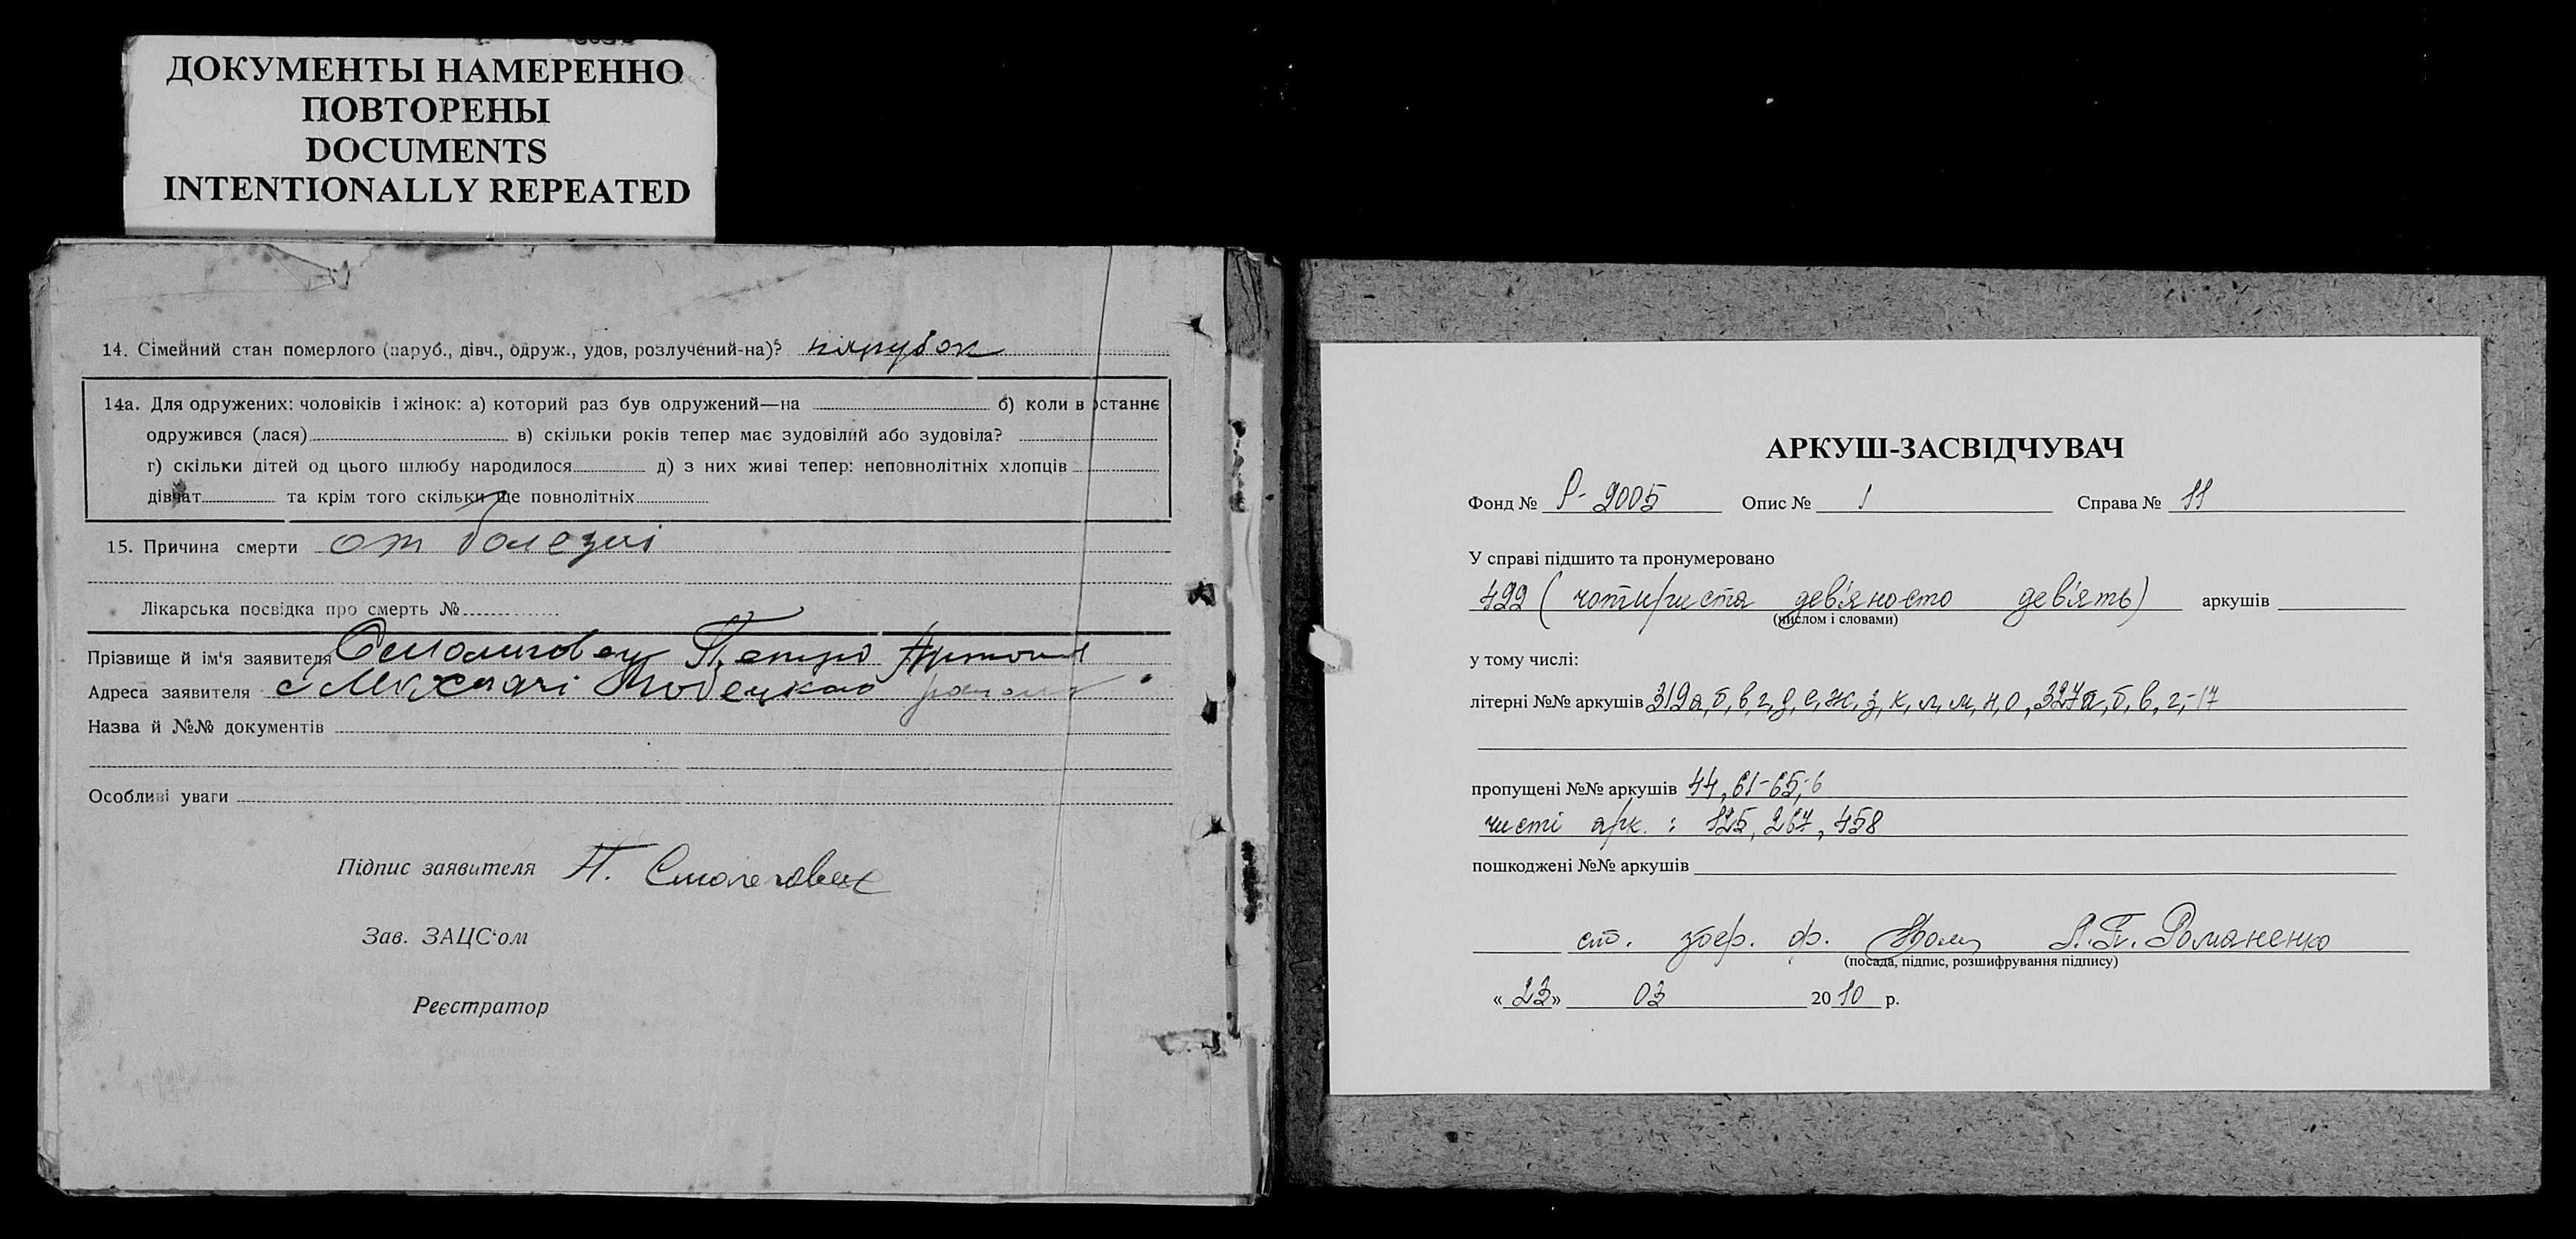 ДОКУМЕНТЫ НАМЕРЕННО
ПОВТОРЕНЫ
DOCUMENTS
INTENTIONALLY REPEATED
14. Сімейний стан померлого (паруб., дівч., одруж., удов, розлучений-на)? парубок
14а. Для одружених: чоловіків і жінок: а) которий раз був одружений—на б) коли востаннє
одружився (лася) в) скільки років тепер має зудовілий або зудовіла?
г) скільки дітей од цього шлюбу народилося д) з них живі тепер: неповнолітніх хлопців
дівчат та крім того скільки ще повнолітніх
15. Причина смерти от болезні
Лікарська посвідка про смерть №
Прізвище й ім'я заявителя Петро
Адреса заявителя с
Назва й №№ документів
Особливі уваги
Підпис заявителя П.
Зав. ЗАЦС'ом
Реєстратор
АРКУШ-ЗАСВІДЧУВАЧ
Фонд № Р-9005 Опис № 1 Справа № 11
У справі підшито та пронумеровано
499 (чотириста дев'яносто дев'ять) аркушів
(числом і словами)
у тому числі:
літерні №№ аркушів 319а, б, в, г, д, е, ж, з, к, л, м, н, о, 327а, б, в, г,-17
пропущені №№ аркушів 44, 61-65,-6
чисті арк. : 125, 267, 458
пошкоджені №№ аркушів
ст. збер. ф. Л.П. Романенко
(посада, підпис, розшифрування підпису)
«23» 03 2010 р.